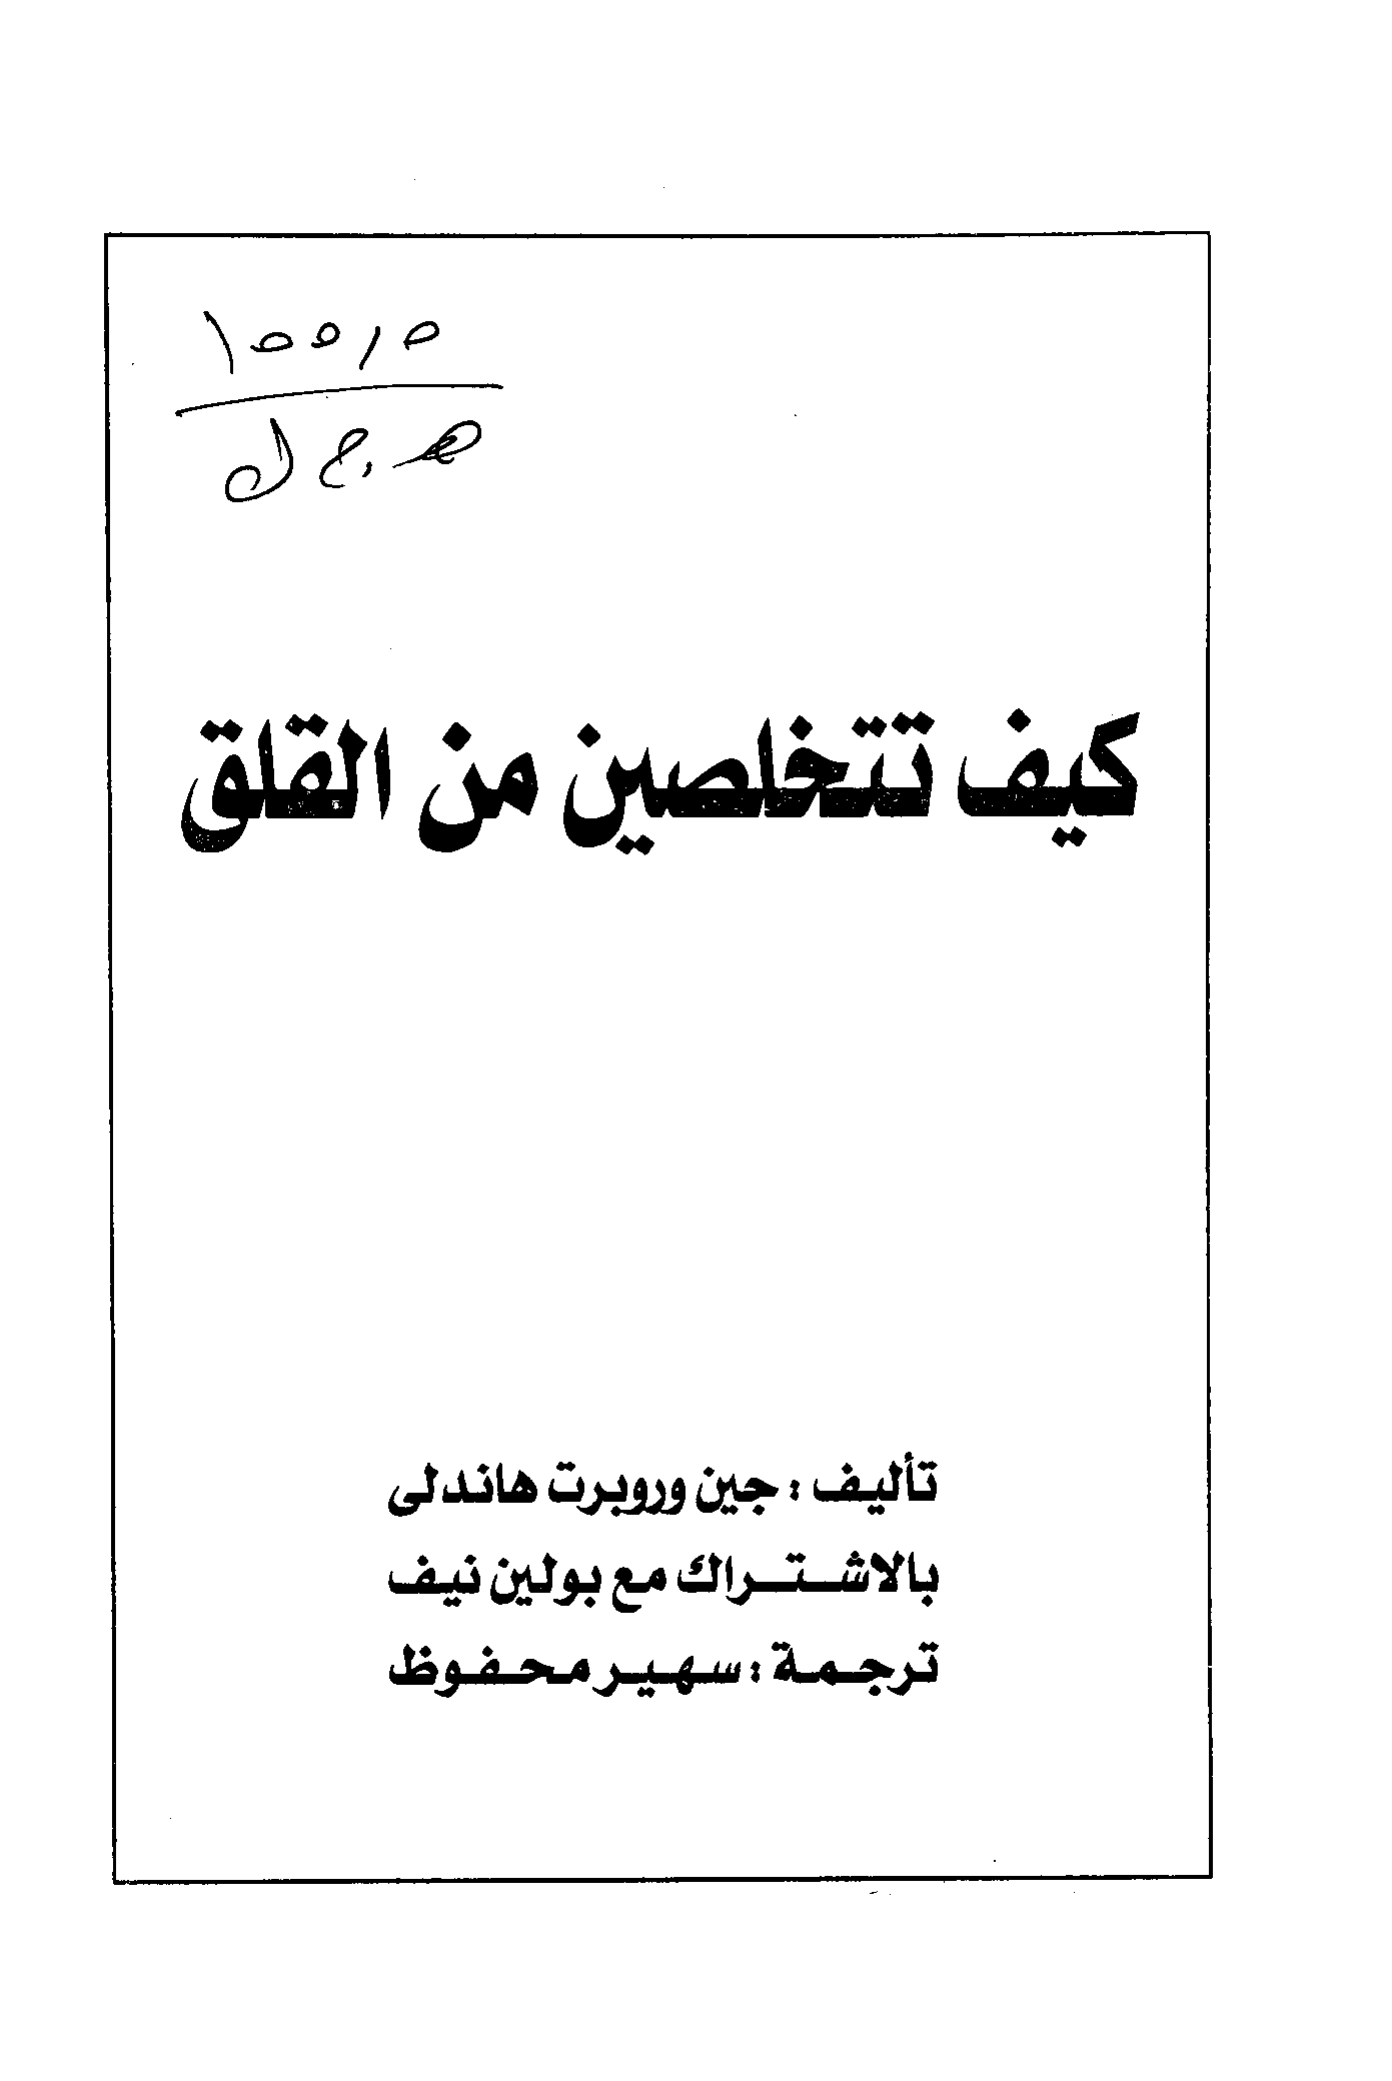 ١٥٥,٥
هـ. ج ك
كيف تتخلصين من القلق
تأليف : جين وروبرت هاندلى
بالاشتراك مع بولين نيف
ترجمة : سهير محفوظ